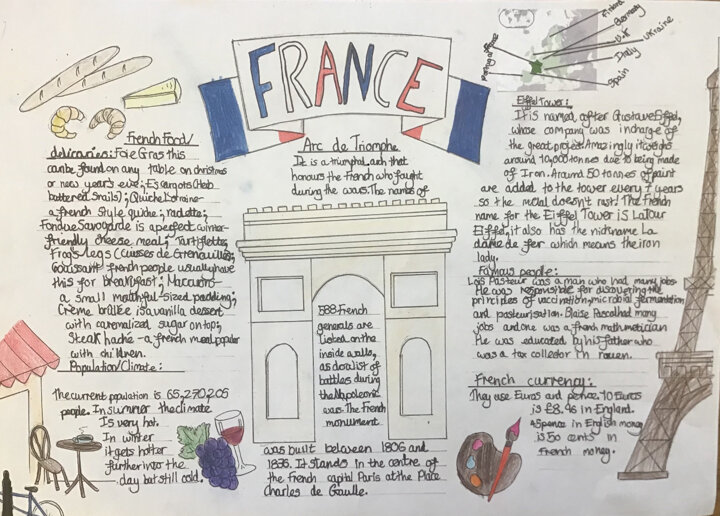 FRANCE
French Food/
delicacies: Foie Gras this
can be found on any table on christmas
or new year's eve; Escargots (Herb
buttered snails); Quiche Loraine-
a french style quiche; raclette;
Fondue Savoyarde is a perfect winter-
friendly cheese meal; Tartiflette;
Frogs legs (Cuisses de Grenouilles);
Croissant french people usually have
this for breakfast; Macarons-
a small mouthful-sized pudding;
Creme brûlée is a vanilla dessert
with caramalized sugar on top;
Steak haché - a french meal popular
with children.
Population/Climate:
The current population is 65,270,205
people. In summer the climate
Is very hot.
In winter
it gets hotter
further into the
day but still cold.
Arc de Triomphe
It is a triumphal arch that
honours the French who fought
during the wars. The names of
588 French
generals are
listed on the
inside walls,
as do a list of
battles during
the Napoleonic
wars. The French
monument
was built between 1806 and
1836. It stands in the centre of
the French capital Paris at the Place
Charles de Gaulle.
Finland
Germany
U.K
Ukraine
Italy
Spain
Portugal
Eiffel Tower:
It is named after Gustave Eiffel,
whose company was in charge of
the great project. Amazingly it weighs
around 10,000 tonnes due to being made
of Iron. Around 50 tonnes of paint
are added to the tower every 7 years
so the metal doesn't rust! The French
name for the Eiffel Tower is La Tour
Eiffel, it also has the nickname La
dame de fer which means the iron
lady.
Famous people:
Lois Pasteur was a man who had many jobs.
He was responsible for discovering the
principles of vaccination, microbial fermentation
and pasteurisation. Blaise Pascal had many
jobs and one was a french mathmetician
He was educated by his father who
was a tax collector in rouen.
French currency:
They use Euros and pence. 10 Euros
is £8.96 in England.
A 5 pence in English money
is 50 cents in
French money.